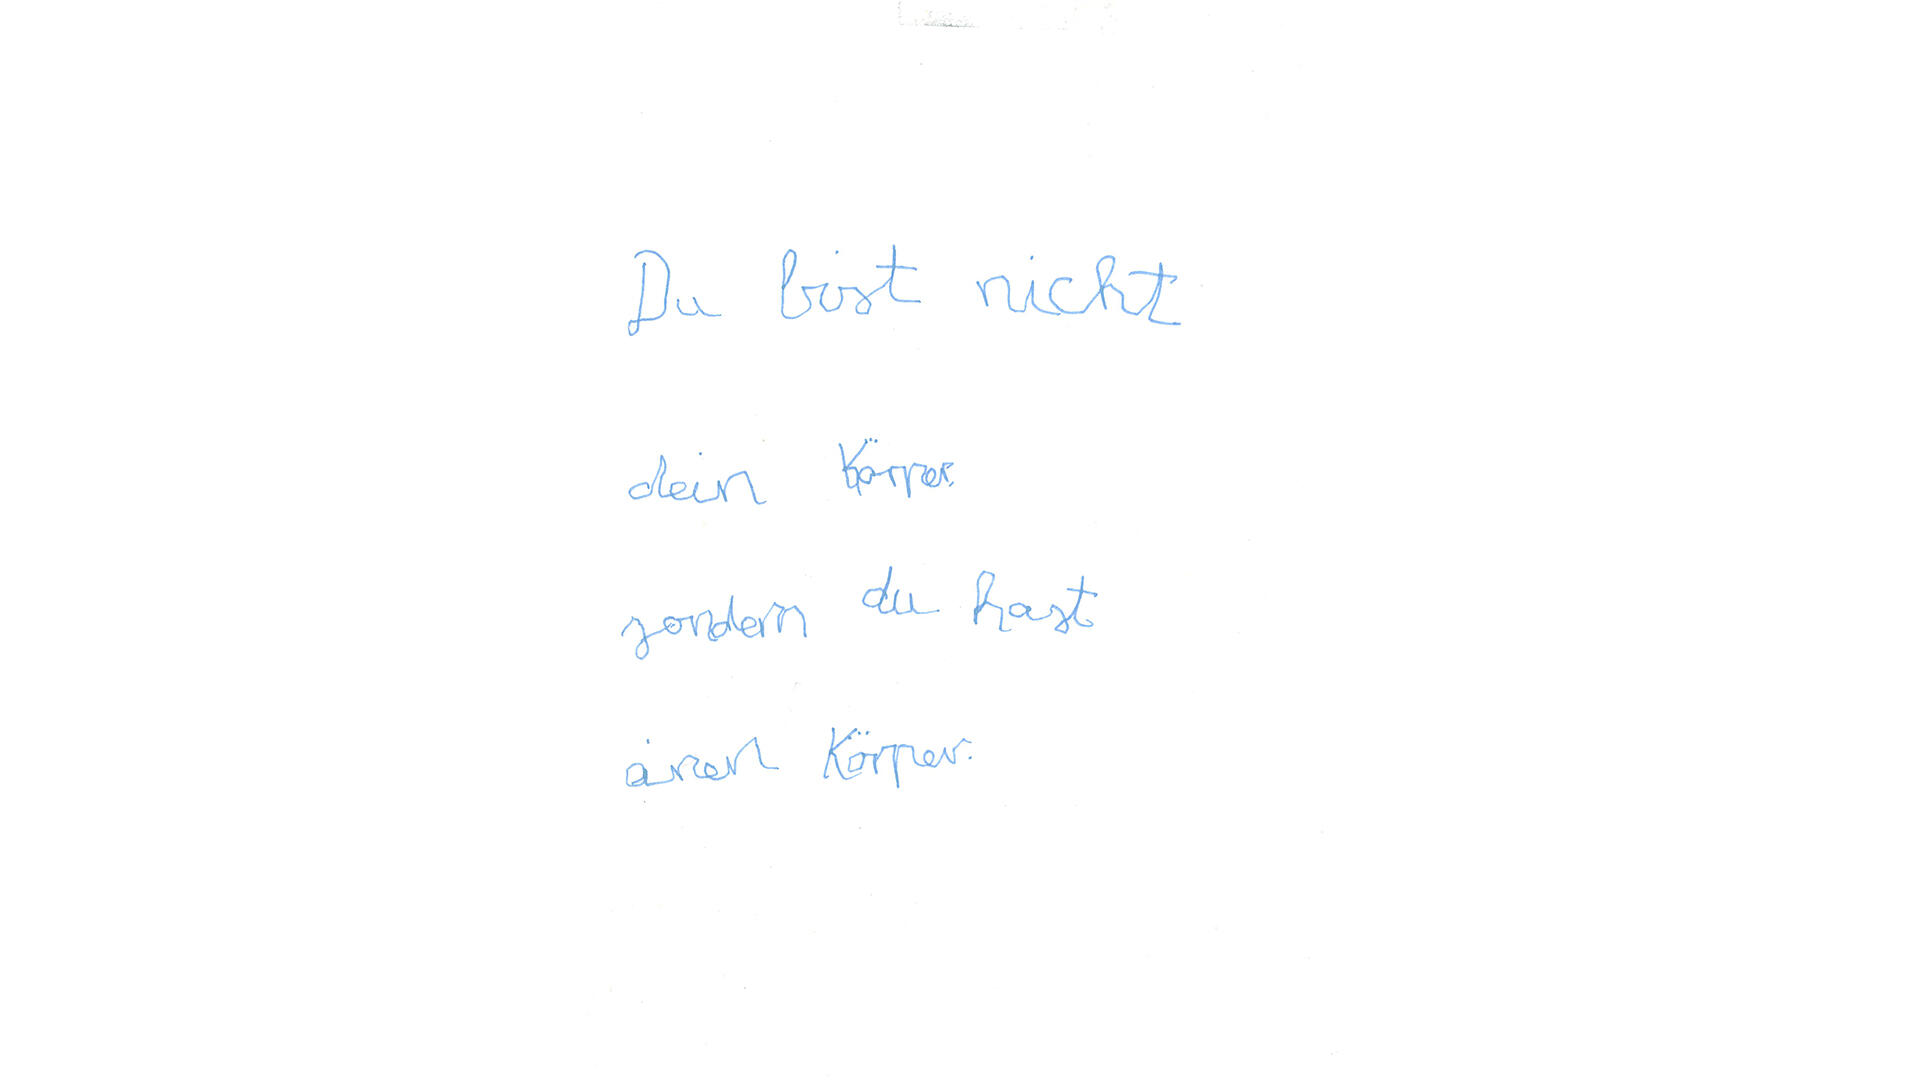 Du bist nicht
dein Körper,
sondern du hast
einen Körper.